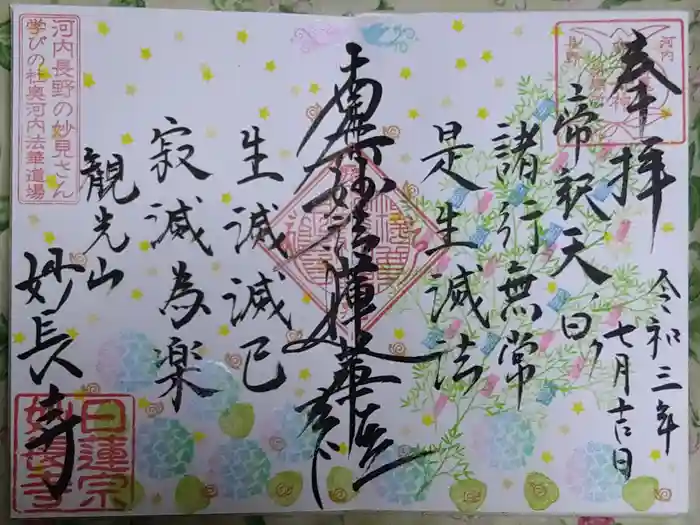 奉拝
令和三年
七月吉日
帝釈天曰ク
諸行無常
是生滅法
南無妙法蓮華経
生滅滅已
寂滅為楽
観光山
妙長寺
河内長野の妙見さん
学びの社奥河内法華道場
河内
長野
日蓮宗
妙長寺